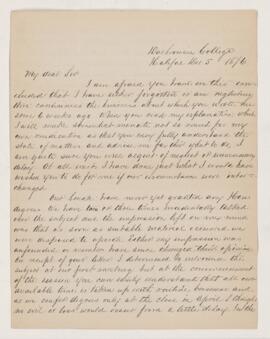 Dalhousie College
Halifax Dec 5 1876
My dear Sir
I am afraid you have in this con-
cluded that I have either forgotten or am neglecting
the business about which you wrote me
some 6 weeks ago. When you read my explanation, which
I will make somewhat minute, not so much for my
own vindication as that you may fully understand the
state of matters and advise me further what to do, I
am quite sure you will acquit of neglect or unnecessary
delay. At all events I have done just what I would have
wished you to do for me if our circumstances were inter-
changed.
Our Senate have never yet granted any Hon
degrees. We have two or three times incidentally talked
over the subject and the impression left on my mind
was that as soon as suitable material occurred we
were disposed to
unfounded or members have since changed their opinion
on receipt of your letter I determined to introduce the
subject at our first meeting but at the commencement
of the session you can easily understand that all our
available time is taken up with routine business and
as we confer degrees only at the close in April I thought
no evil or loss would result from a little delay. In the